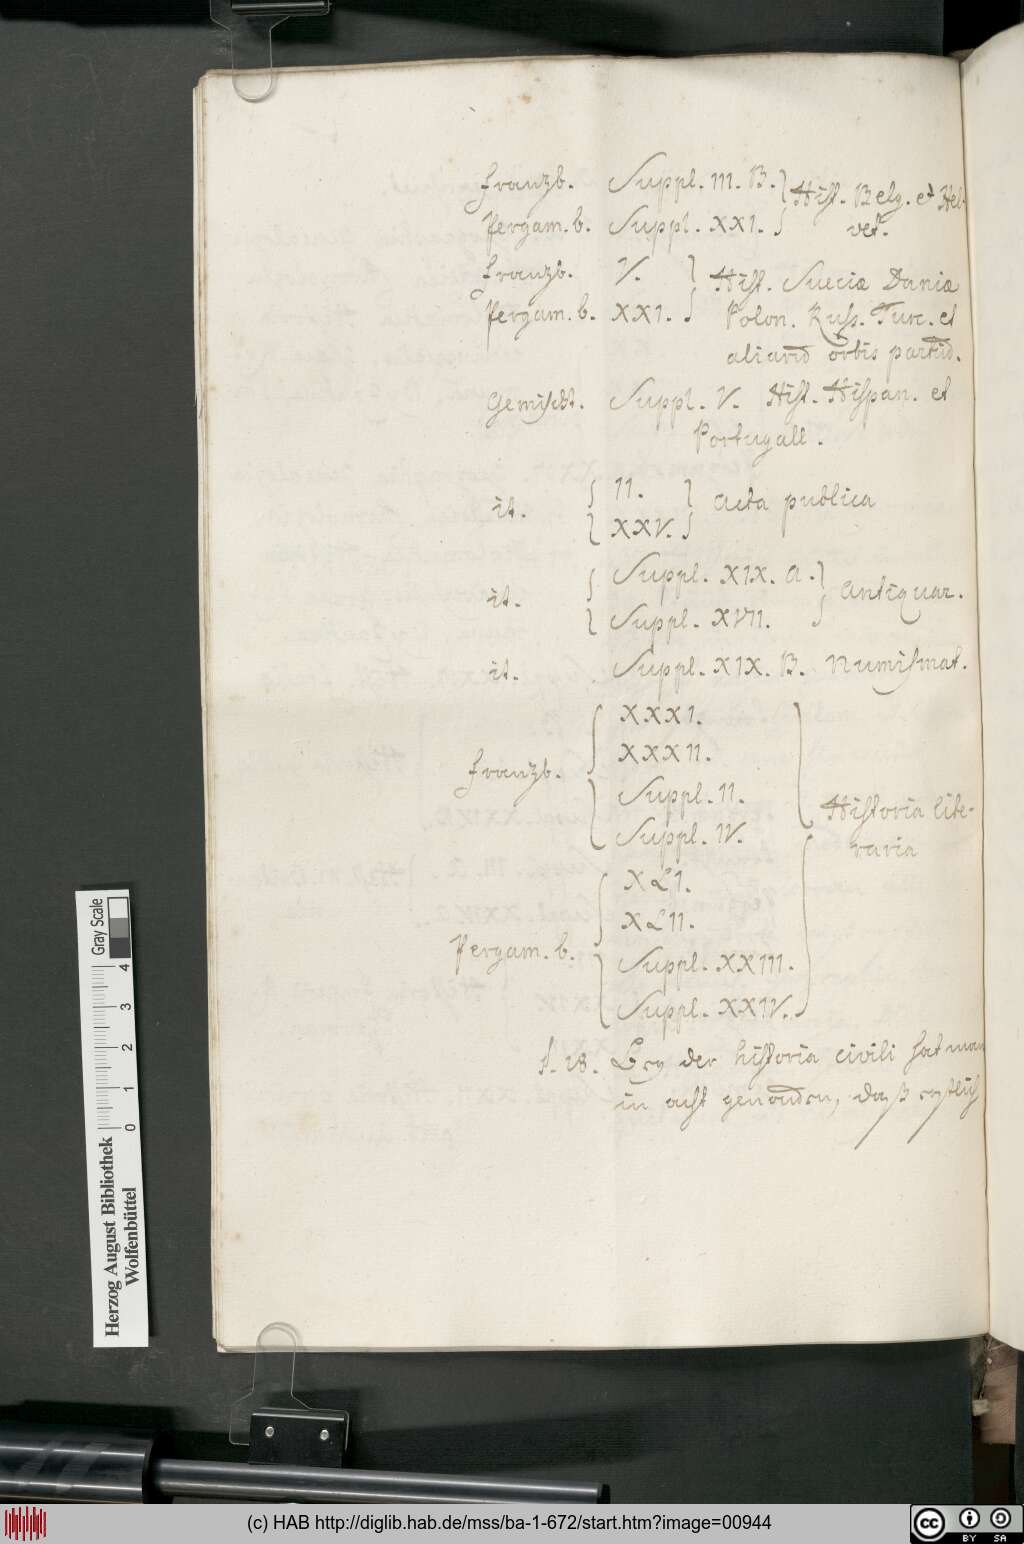 Franzb. Suppl. III. B. } Hist. Belg. et Hel-
Pergam. b. Suppl. XXI. } vet.
Franzb. V. } Hist. Sueciæ Daniæ
Pergam. b. XXI. } Polon. Russ. Turc. et
aliarū orbis partiū.
Gemischt. Suppl. V. Hist. Hispan. et
Portugall.
it. { II. } Acta publica
{ XXV. }
it. { Suppl. XIX. A. } Antiquar.
{ Suppl. XVII. }
it. Suppl. XIX. B. Numismat.
Franzb. { XXXI.
XXXII.
Suppl. II.
Suppl. IV. } Historia lite-
raria
Pergam. b. { XLI.
XLII.
Suppl. XXIII.
Suppl. XXIV. }
§. 18. Bey der historia civili hat man
in acht genom̄en, daß erstlich
Herzog August Bibliothek
Wolfenbüttel
Gray Scale
0 1 2 3 4
(c) HAB http://diglib.hab.de/mss/ba-1-672/start.htm?image=00944
cc BY SA